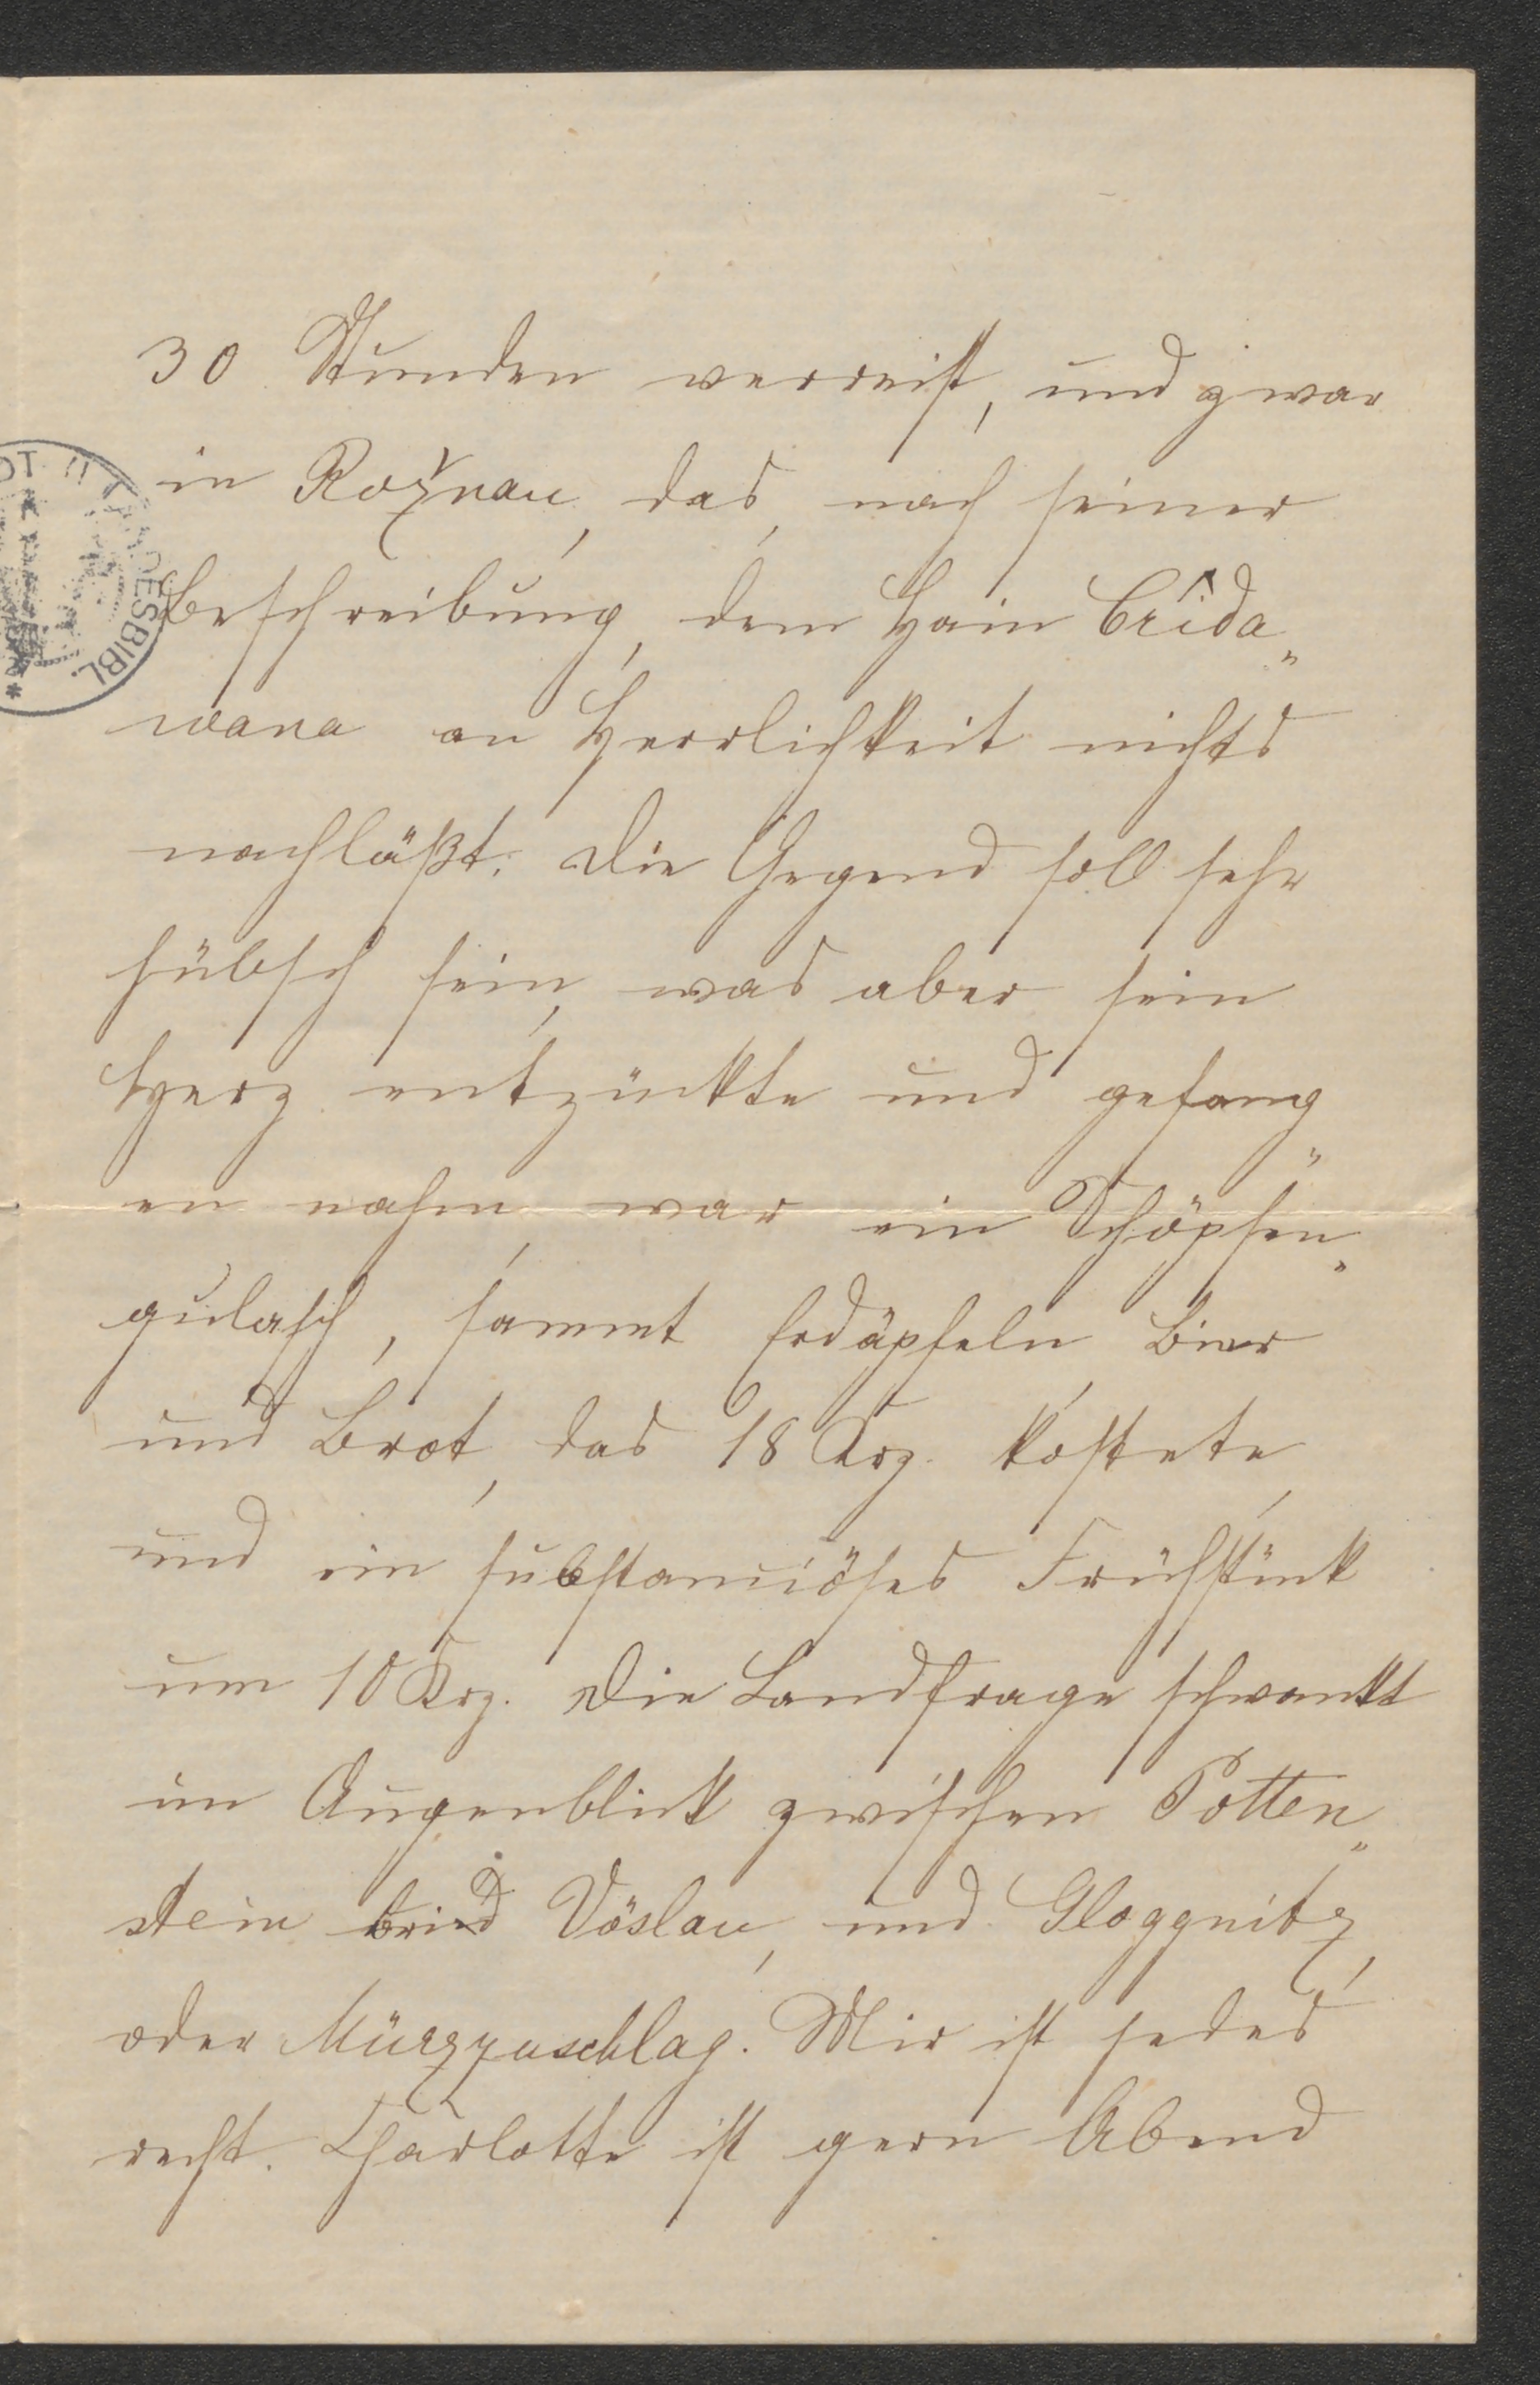 30 Stunden verreist, und zwar
in Rožnau, das, nach seiner
Beschreibung, dem Hain Crida„
wana an Herrlichkeit nichts
nachläßt. Die Gegend soll sehr
hübsch sein, was aber sein
Herz entzückte und gefang„
en nahm, war ein Schöpsen„
gulasch, sammt Erdäpfeln, Bier
und Brot, das 18 Krz. kostete,
und ein substanciöses Frühstück
um 10 Krz. Die Landfrage schwankt
im Augenblick zwischen Potten„
stein Vöslau, und Gloggnitz,
oder Mürzzuschlag. Mir ist jedes
recht. Charlotte ist gern Abend
LANDESBIBL.